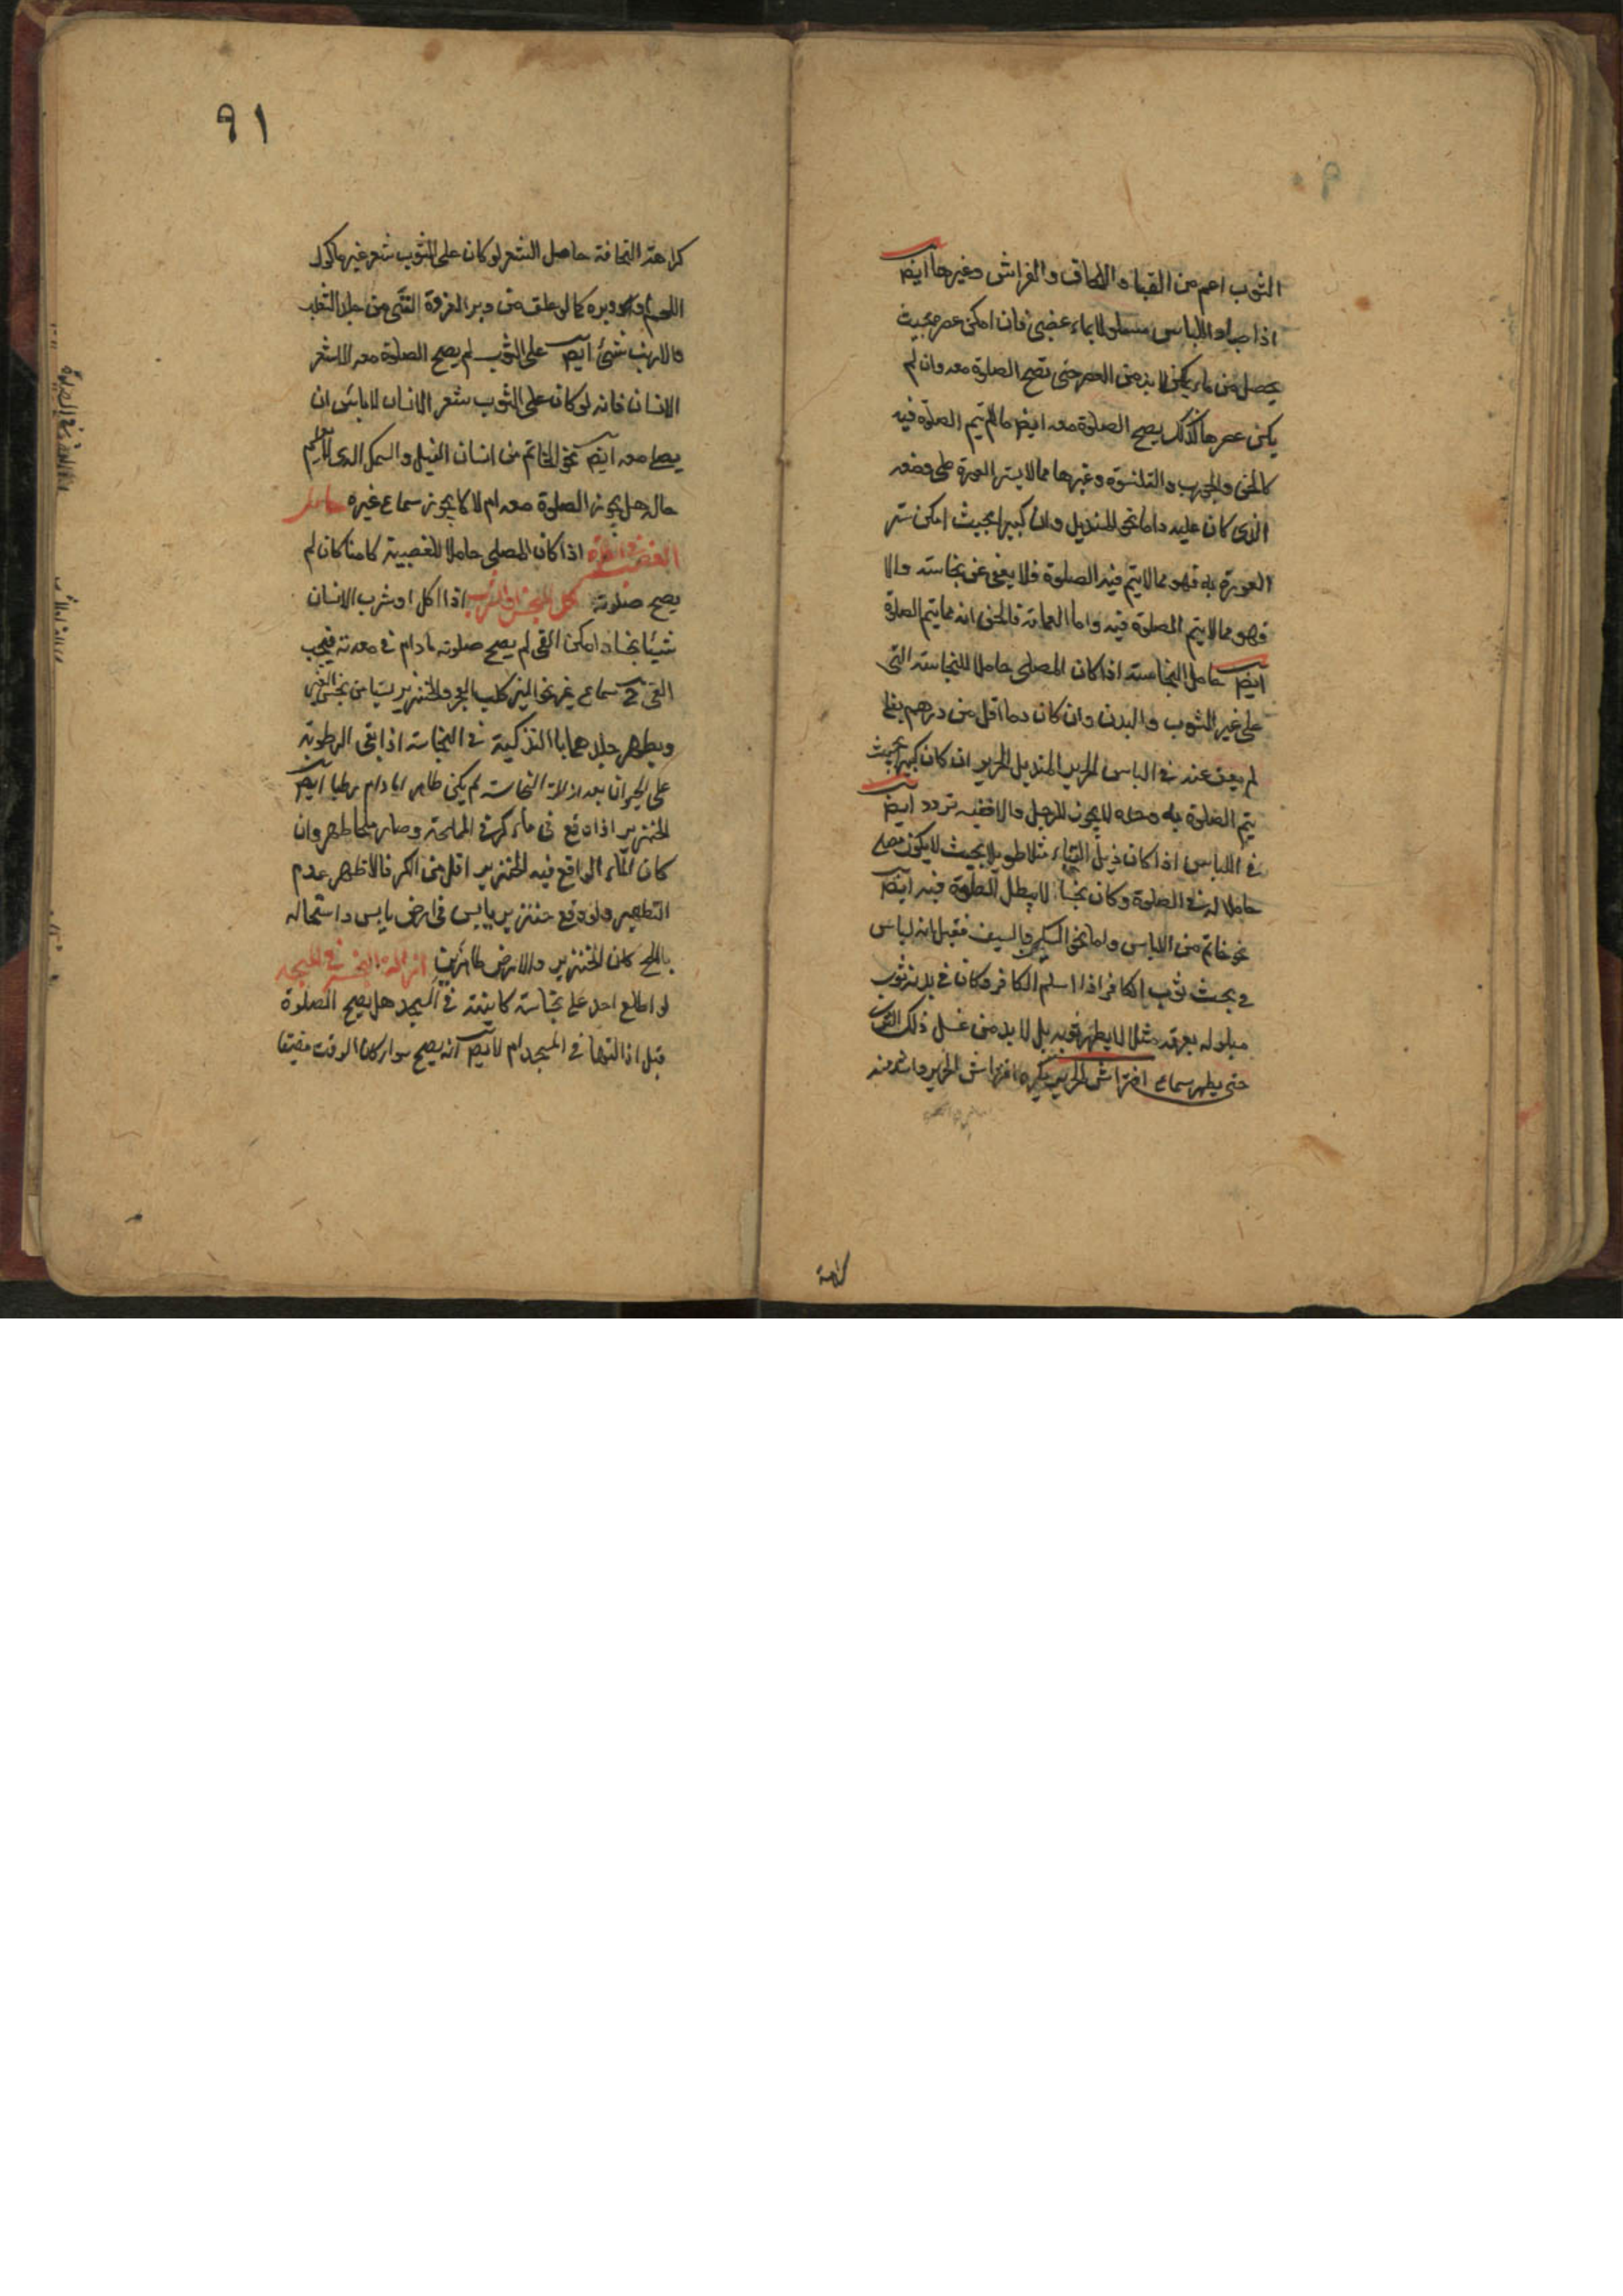 الثوب اعم من القباء والحاف والفراش وغيرها ايضا
اذا صار اللباس مبلولا بماء غصبى فان امكن عصره بحيث
يحصل من ماء يمكن لا بد من العصر حتى تصح الصلوة معه وان لم
يكن عصرها كذلك يصح الصلوة معه ايضا مالم يتم الصلوة فيه
كالخف والجورب والقلنسوة وغيرها مما لا يستر العورة على وضعه
الذى كان عليه واما نحو المنديل وان كبيرا بحيث امكن ستر
العورة به فهو مما لا يتم فيه الصلوة فلا يعفى عن نجاسته والا
فهو مما لا يتم الصلوة فيه واما العمامة فالحق انه مما يتم الصلوة
ايضا حامل النجاسة اذا كان المصلى حاملا للنجاسة التى
على غير الثوب والبدن وان كان دما اقل من درهم بغلى
لم يعف عنه فى الباس الحرير المنديل الحرير ان كان كبيرا بحيث
يتم الصلوة به وحده لا يجوز للرجل والا ففيه تردد ايضا
فى اللباس اذا كان ذيل القباء مثلا طويلا بحيث لا يكون مصلى
حاملا له فى الصلوة وكان نجسا لا يبطل الصلوة فيه ايضا
نحو خاتم من اللباس واما نحو السكين والسيف فقيل انه لباس
فى بحث ثوب الكافر اذا اسلم الكافر وكان فى بدنه ثوب
مبلوله بعرقه مثلا لا يطهر ثوبه بل لا بد من غسل ذلك الثوب
حتى يطهر سماع افتراش الحرير يكره افتراش الحرير واشد منه
كراهة
٩١
كراهة النجافة حاصل الشعر لو كان على الثوب شعر غير ماكول
اللحم او وبره كما لو علق من وبر الفروة التى من جلد الثعلب
والارنب شئ ايضا على الثوب لم يصح الصلوة معه الا شعر
الانسان فانه لو كان على الثوب شعر الانسان لا باس ان
يصلى معه ايضا نحو الخاتم من اسنان الفيل والسمك الذى لا يعلم
حاله هل يجوز الصلوة معه ام لا كا يجوز سماع غيره حامل
اذا كان المصلى حاملا للغصبية كامنا كان لم
يصح صلوته اكل النجس والشرب اذا اكل او شرب الانسان
شيئا نجسا وامكن القى لم يصح صلوته مادام فى معدته فيجب
القى سماع غيره نحو كلب البحر والخنزير ليسا من نجس العين
ويطهر جلدهما بالتذكية فى النجاسة اذا بقى الرطوبة
على الحيوان بعد ازلات النجاسة لم يكن طاهرا مادام رطبا ايضا
الخنزير اذا وقع فى ماء كر فى المملحة وصار ملحا طهر وان
كان الماء الواقع فيه الخنزير اقل من الكر فالاظهر عدم
التطهير ولو وقع خنزير يابس فى ارض يابس واستحاله
بالملح كان الخنزير والارض طاهرين ازالة النجس فى المسجد
لو اطلع احد على نجاسة كاينة فى المسجد هل يصح الصلوة
قبل ازالتها فى المسجد ام لا ايضا انه يصح سواء كان الوقت مضيقا